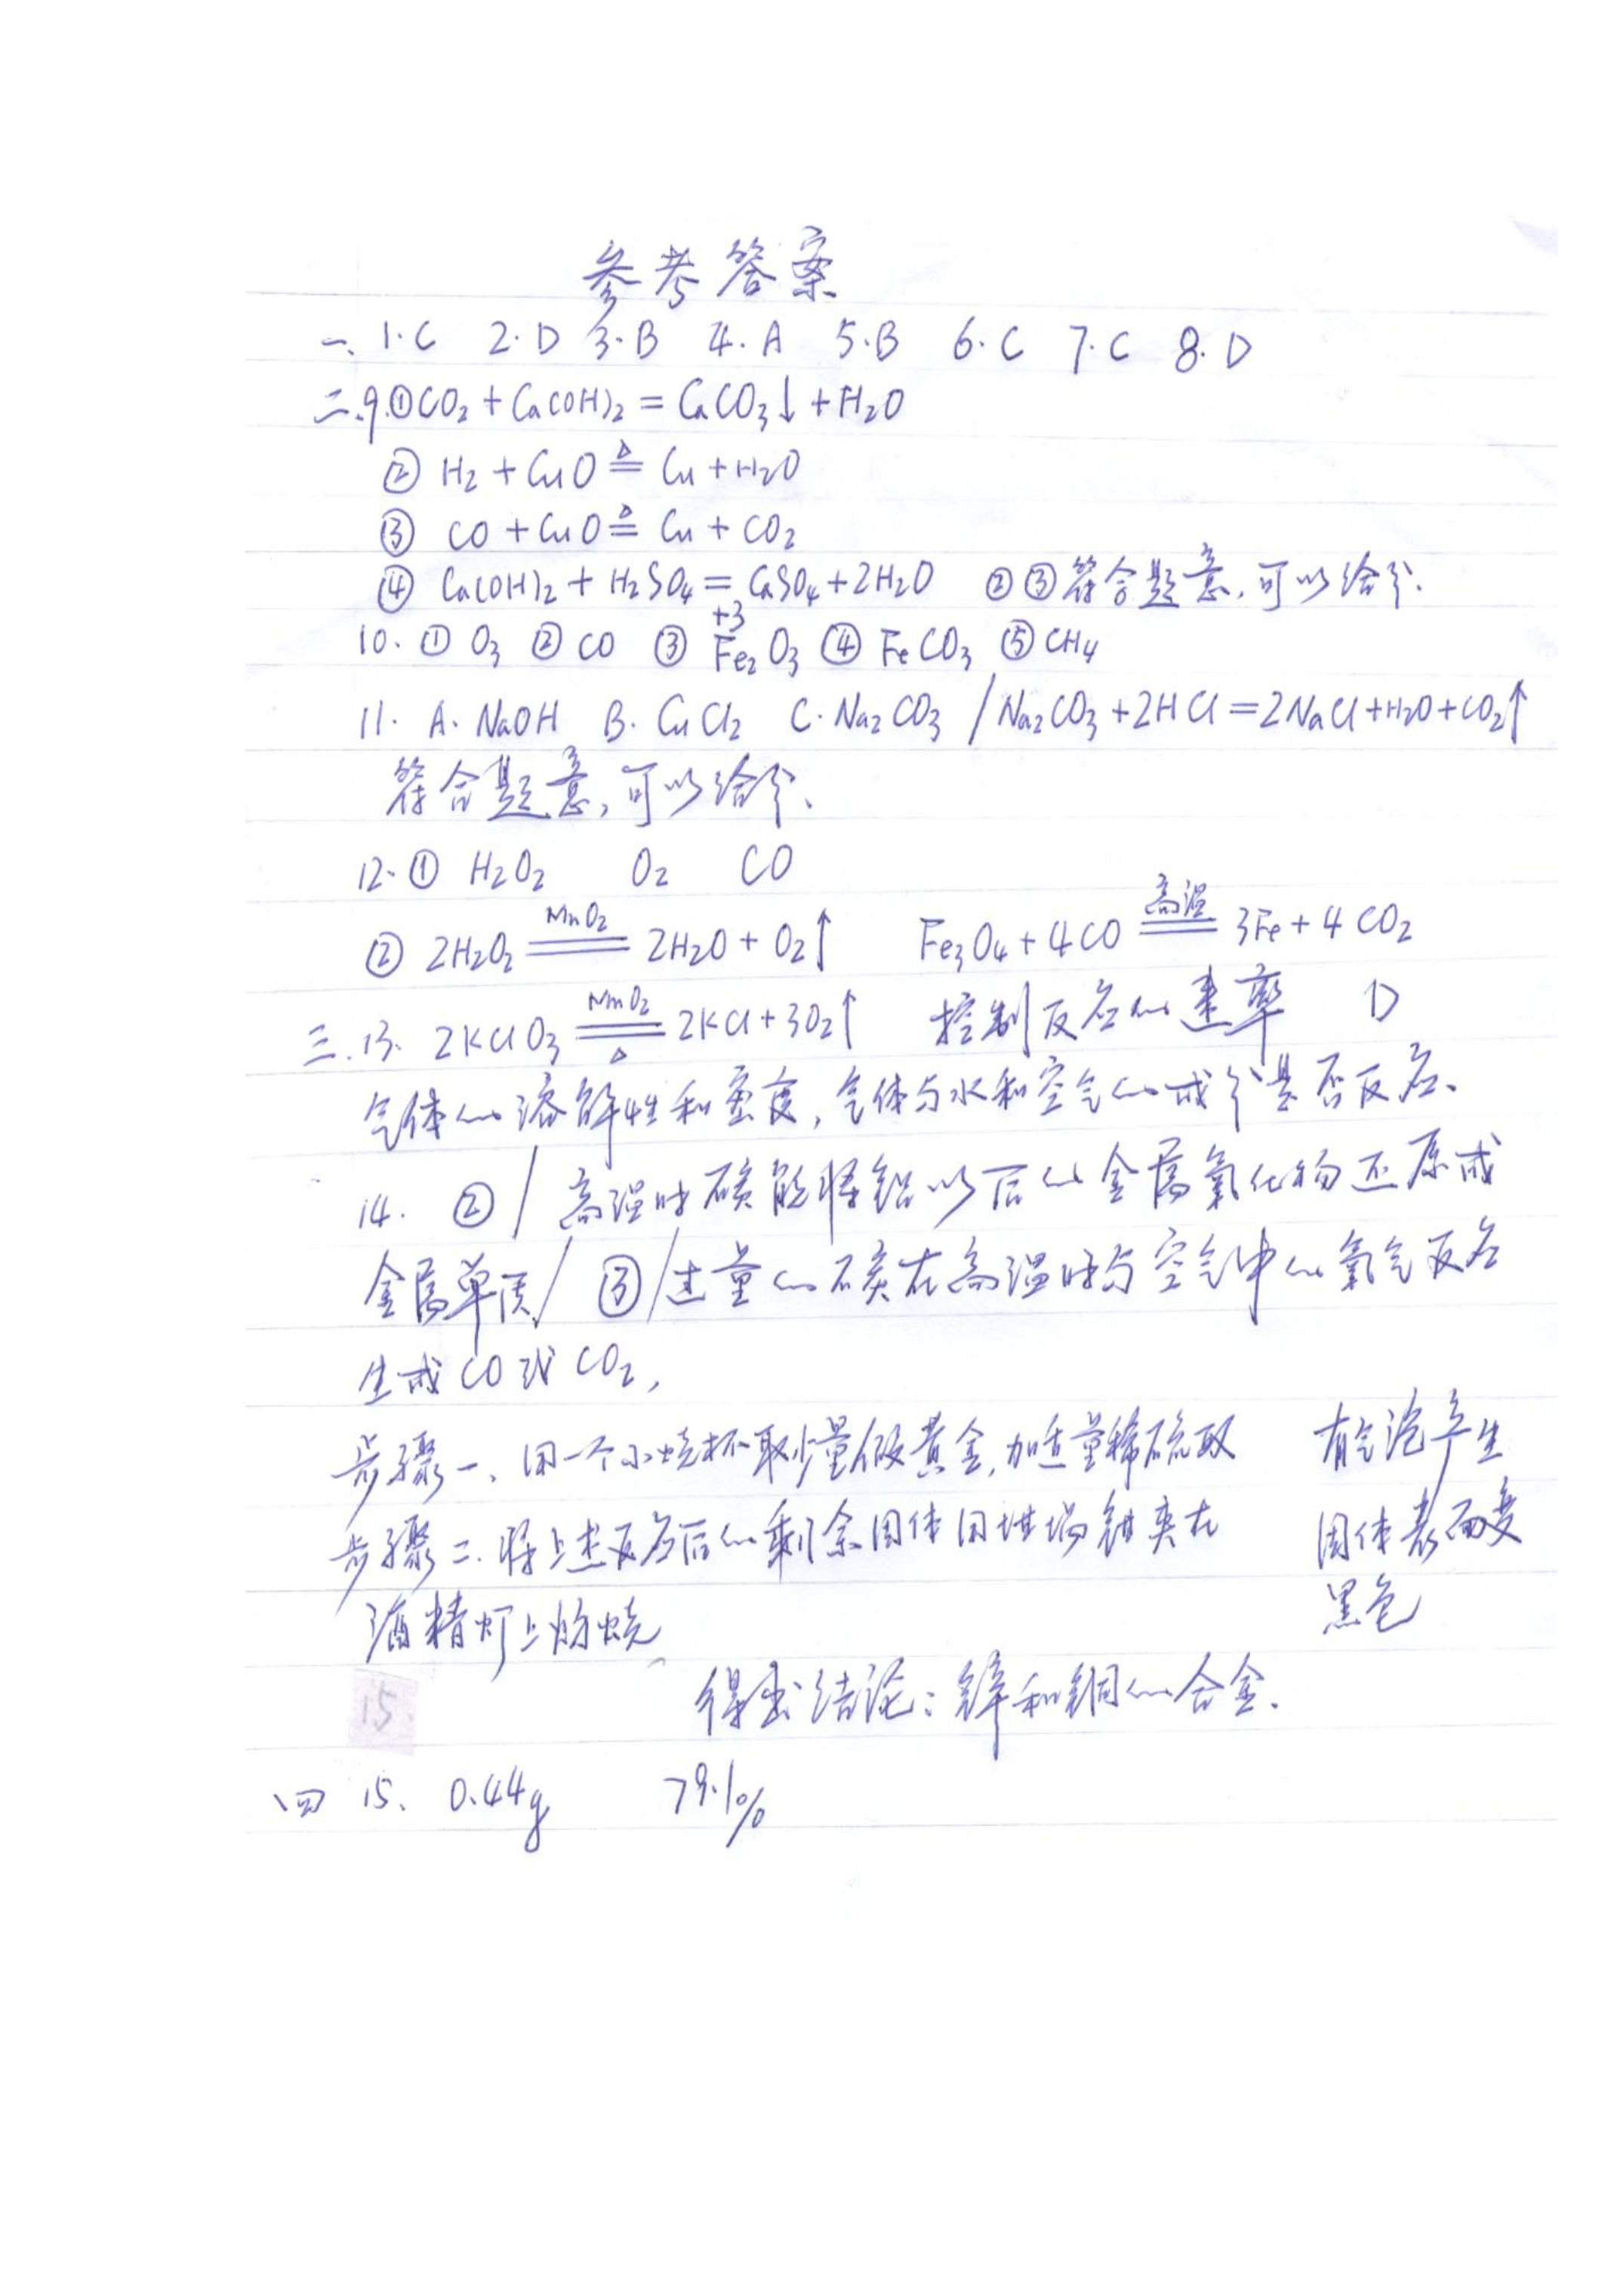 参考答案
一、1.C 2.D 3.B 4.A 5.B 6.C 7.C 8.D
二.9.①CO₂+Ca(OH)₂=CaCO₃↓+H₂O
② H₂+CuO ≜ Cu+H₂O
③ CO+CuO ≜ Cu+CO₂
④ Ca(OH)₂+H₂SO₄=CaSO₄+2H₂O ②③符合题意,可以给分.
10. ① O₃ ② CO ③ +3 Fe₂O₃ ④ FeCO₃ ⑤ CH₄
11. A. NaOH B. CuCl₂ C. Na₂CO₃ / Na₂CO₃+2HCl=2NaCl+H₂O+CO₂↑
符合题意,可以给分、
12. ① H₂O₂ O₂ CO
② 2H₂O₂ =MnO₂= 2H₂O+O₂↑ Fe₃O₄+4CO =高温= 3Fe+4CO₂
三.13. 2KClO₃ =MnO₂ △= 2KCl+3O₂↑ 控制反应的速率 D
气体的溶解性和密度,气体与水和空气的成分是否反应、
14. ② / 高温时碳能将铝以后的金属氧化物还原成
金属单质/ ③/过量的碳在高温时与空气中的氧气反应
生成CO或CO₂,
步骤一、用一个小烧杯取少量假黄金,加适量稀硫酸 有气泡产生
步骤二.将上述反应后的剩余固体用坩埚钳夹在 固体表面变
酒精灯上灼烧 黑色
15. 得出结论:锌和铜的合金.
四 15、0.44g 79.1%